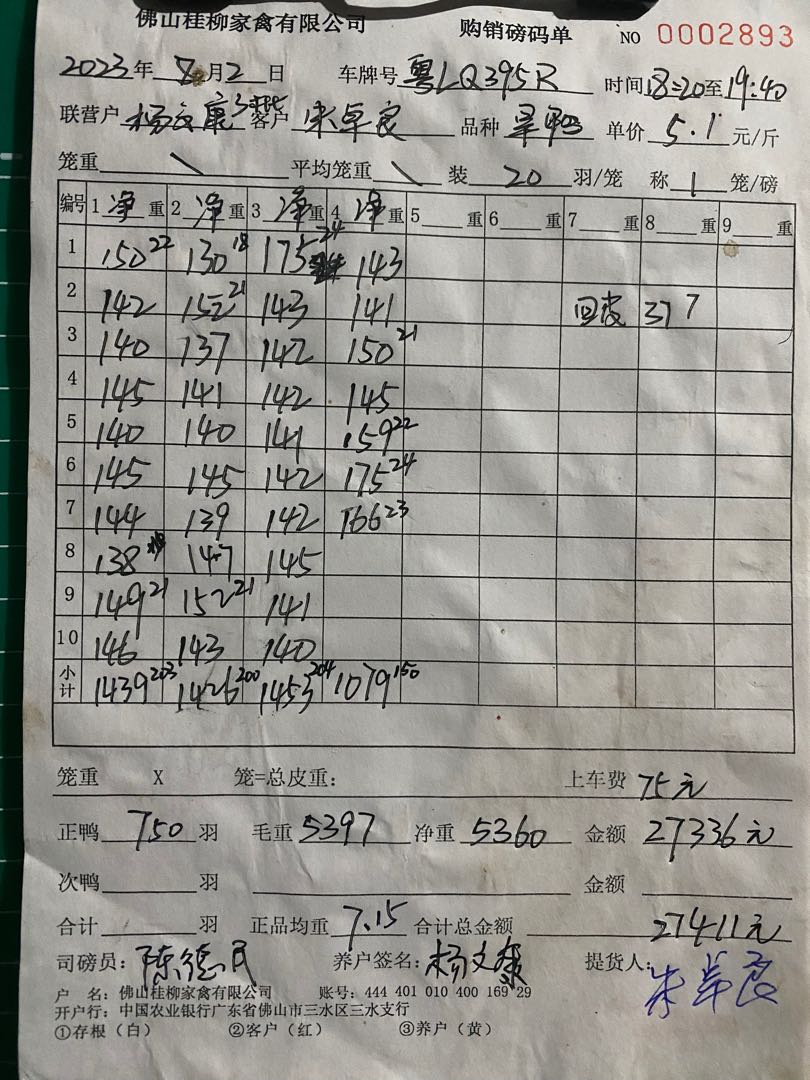 佛山桂柳家禽有限公司 购销磅码单 NO 0002893
2023年 8月2日 车牌号 粤LQ395R 时间18:20至19:40
联营户 杨文康 客户 朱卓良 品种 单价 5.1 元/斤
笼重 \ 平均笼重 \ 装 20 羽/笼 称 1 笼/磅
编号 1 净 重 2 净 重 3 净 重 4 净 重 5 重 6 重 7 重 8 重 9 重
1 150 22 130 18 175 24 143
2 142 152 21 143 141 回皮 37 7
3 140 137 142 150 21
4 145 141 142 145
5 140 140 141 159 22
6 145 145 142 175 24
7 144 139 142 166 23
8 138 147 145
9 149 21 152 21 141
10 146 143 140
小计 1439 203 1426 200 1453 204 1079 150
笼重 X 笼=总皮重: 上车费 75元
正鸭 750 羽 毛重 5397 净重 5360 金额 27336元
次鸭 羽 金额
合计 羽 正品均重 7.15 合计总金额 27411元
司磅员: 陈德民 养户签名: 杨文康 提货人: 朱卓良
户 名: 佛山桂柳家禽有限公司 账号: 444 401 010 400 169 29
开户行: 中国农业银行广东省佛山市三水区三水支行
①存根(白) ②客户(红) ③养户(黄)